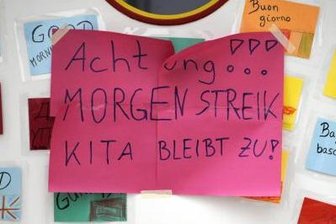 Buon
giorno
GOOD
MORN
Achtung!!!
MORGEN STREIK
KITA BLEIBT ZU!